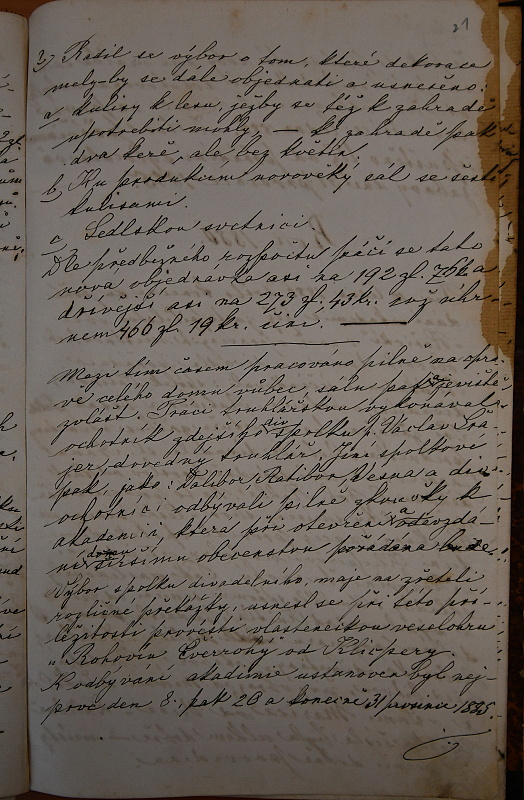 21
3, Radil se výbor o tom, které dekorace
mely-by se dále objednati a usneseno:
a, kulisy k lesu, ježby se též k zahradě
upotrebiti mohly, — k zahradě pak
dva keře, ale bez květin,
b, Ku produkcím novověký sál se šesti
kulisami.
c, Sedlskou svetnici.
Dle předbežného rozpočtu páčí se tato
nova objednávka asi na 192 zl. 76 a
dřívější asi na 273 zl. 43 kr. což úhr-
nem 466 zl. 19 kr. činí. —
Mezi tím časem pracováno pilně na opra-
vě celého domu vůbec, sálu pak a jeviště
zvlášť. Práci truhlářskou vykonával
ochotník zdejšího div. spolku p. Václav
jer, dovedný truhlář. Jiné spolkové
pak, jako: Dalibor, Ratibor, Vesna a div.
ochotníci odbývali pilně zkoušky k
akademii, která při otevření a odevzdá-
ní širšímu obecenstvu pořádána bude.
Výbor spolku divadelního, maje na zřeteli
rozličné překážky, usnesl se při této pří-
ležitosti provésti vlasteneckou veselohru
„Rohovín Čverrohý od Klicpery.
K odbyvaní akademie ustanoven byl nej-
prvé den 8. pak 26 a konečně 31 prosince 1885.